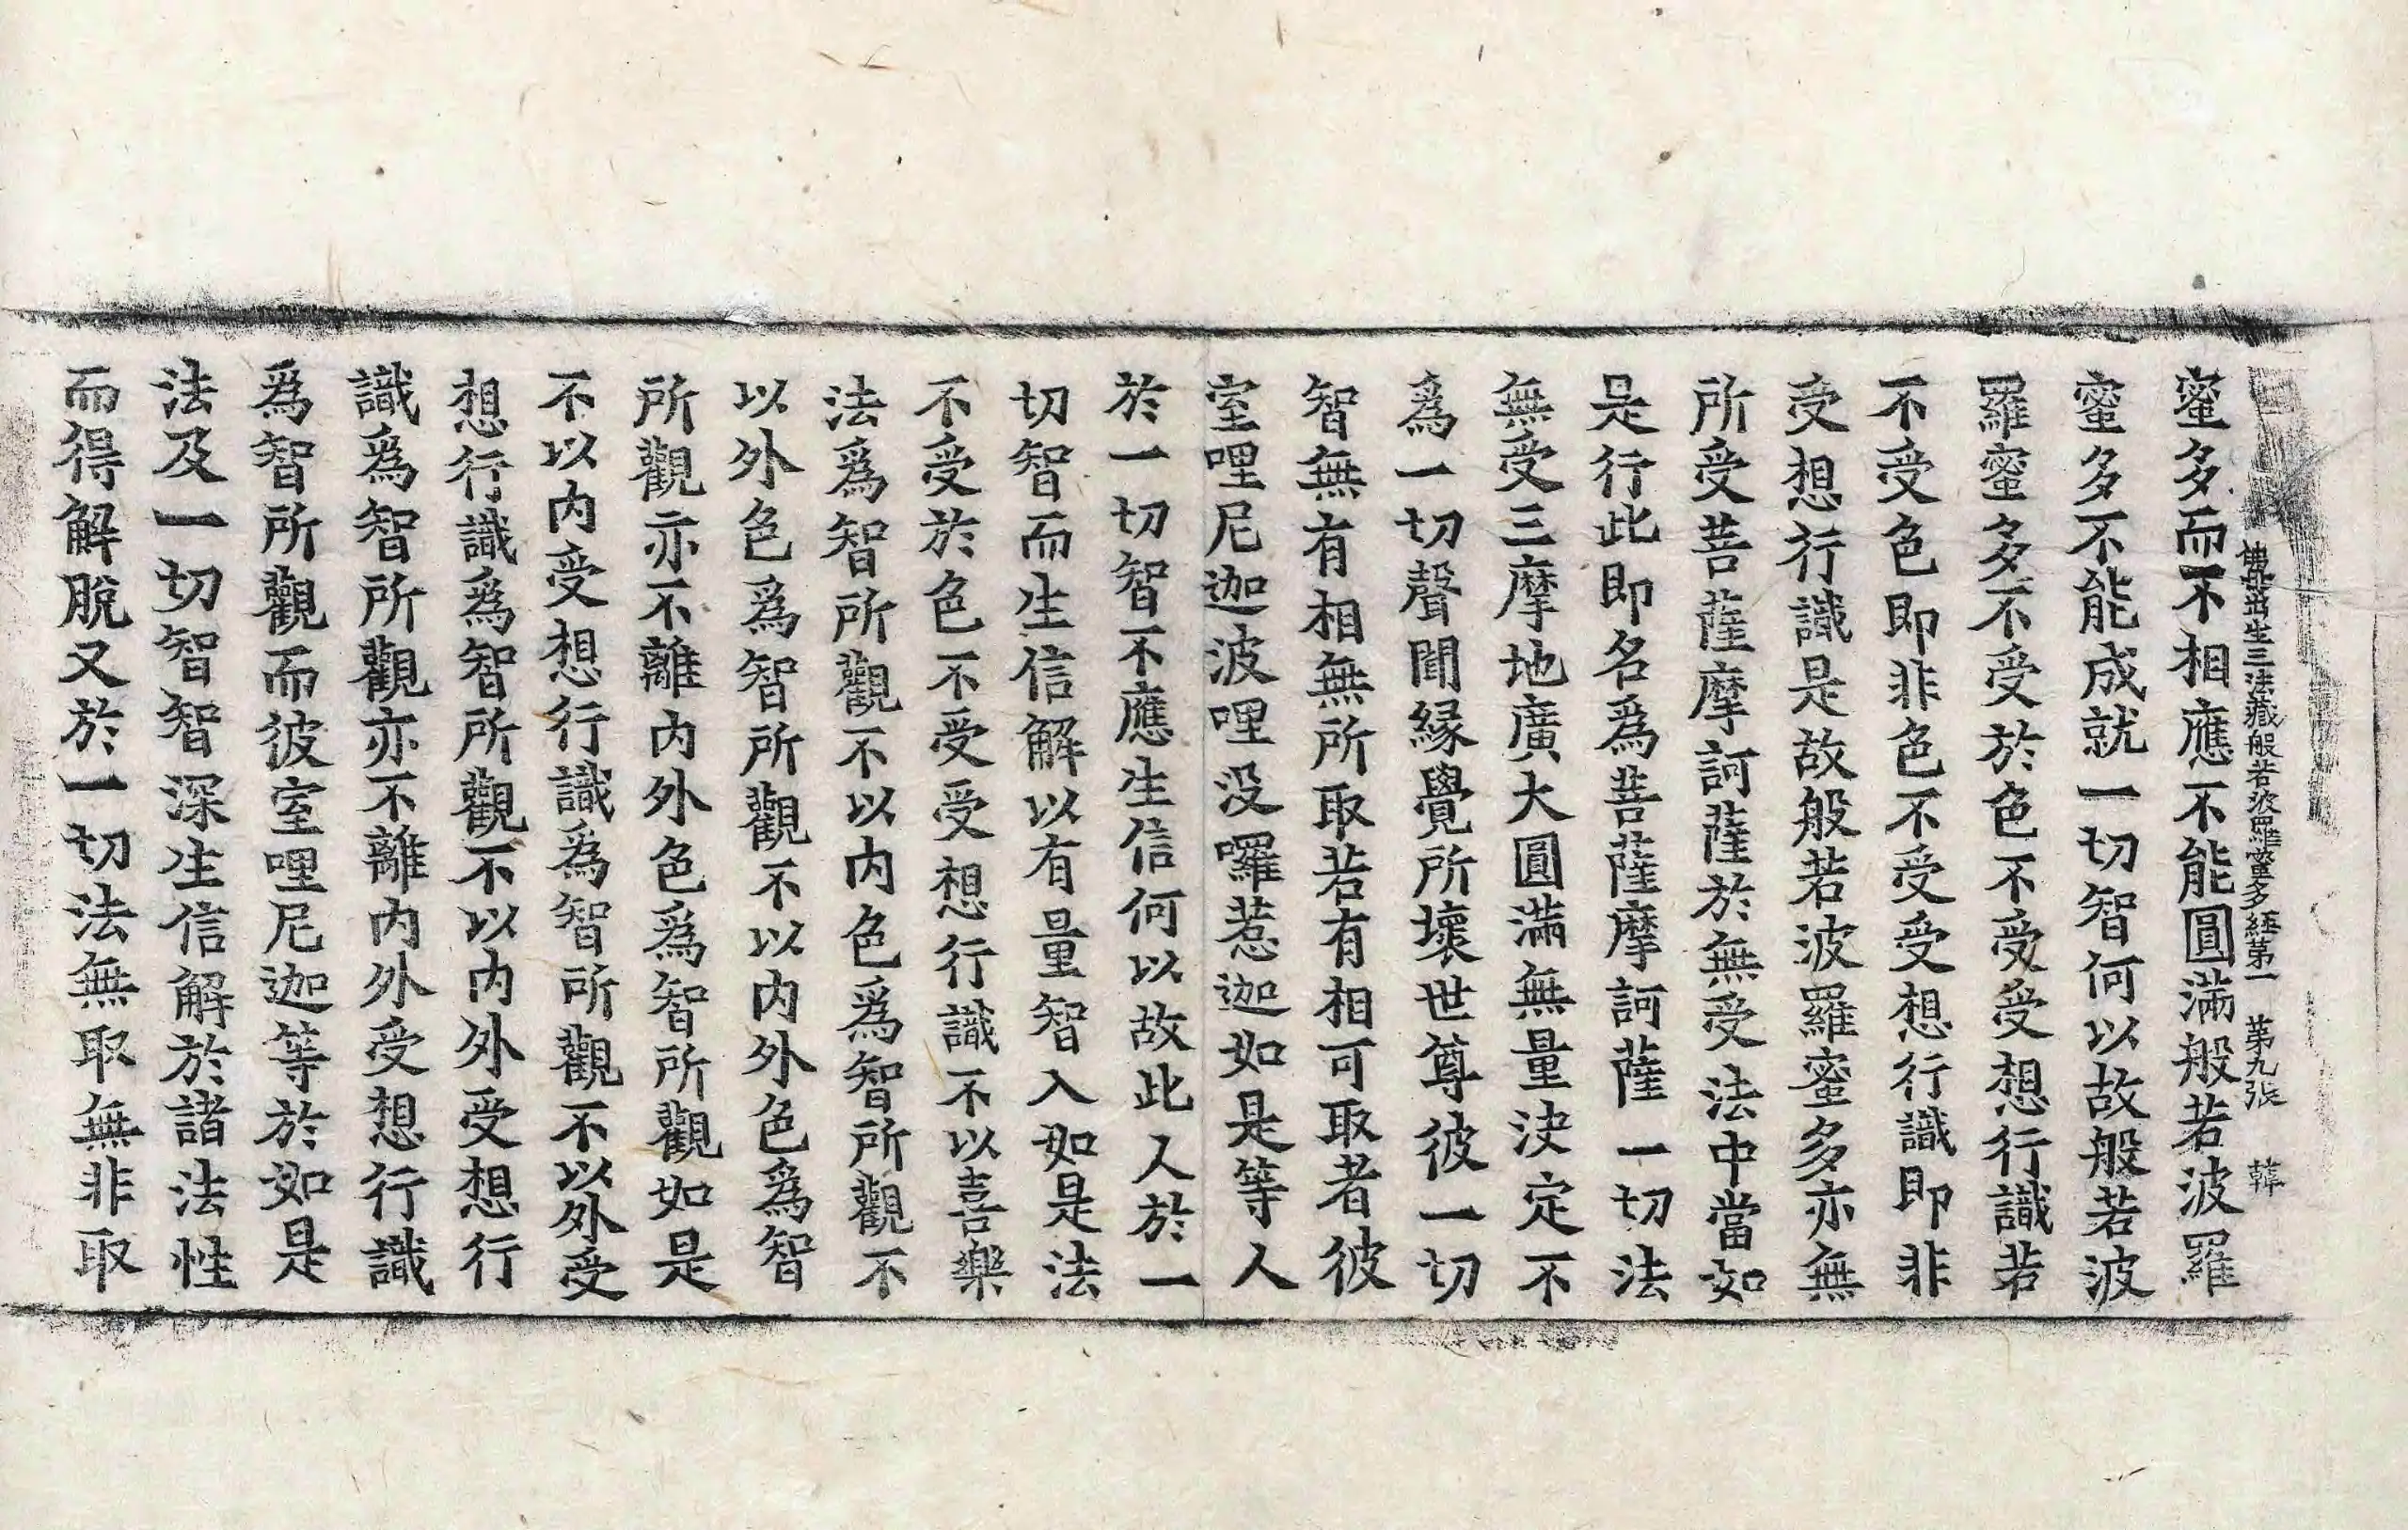 佛母出生三法藏般若波羅蜜多經第一 第九張 韓
蜜多而不相應不能圓滿般若波羅
蜜多不能成就一切智何以故般若波
羅蜜多不受於色不受受想行識若
不受色即非色不受受想行識即非
受想行識是故般若波羅蜜多亦無
所受菩薩摩訶薩於無受法中當如
是行此即名爲菩薩摩訶薩一切法
無受三摩地廣大圓滿無量決定不
爲一切聲聞緣覺所壞世尊彼一切
智無有相無所取若有相可取者彼
室哩尼迦波哩没囉惹迦如是等人
於一切智不應生信何以故此人於一
切智而生信解以有量智入如是法
不受於色不受受想行識不以喜樂
法爲智所觀不以内色爲智所觀不
以外色爲智所觀不以内外色爲智
所觀亦不離内外色爲智所觀如是
不以内受想行識爲智所觀不以外受
想行識爲智所觀不以内外受想行
識爲智所觀亦不離内外受想行識
爲智所觀而彼室哩尼迦等於如是
法及一切智智深生信解於諸法性
而得解脫又於一切法無取無非取